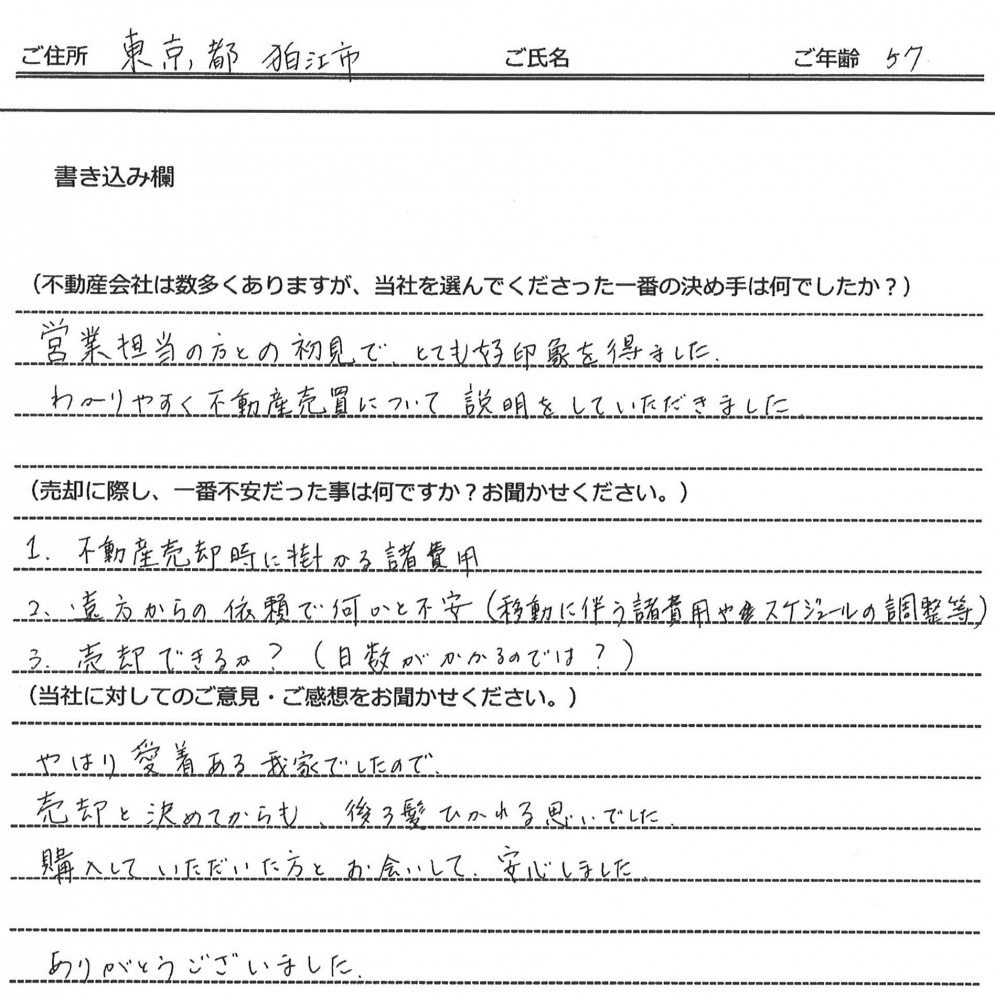 ご住所 東京都 狛江市 ご氏名 ご年齢 57
書き込み欄
（不動産会社は数多くありますが、当社を選んでくださった一番の決め手は何でしたか？）
営業担当の方との初見で、とても好印象を得ました。
わかりやすく不動産売買について説明をしていただきました。
（売却に際し、一番不安だった事は何ですか？お聞かせください。）
1. 不動産売却時に掛かる諸費用
2. 遠方からの依頼で何かと不安（移動に伴う諸費用やスケジュールの調整等）
3. 売却できるか？（日数がかかるのでは？）
（当社に対してのご意見・ご感想をお聞かせください。）
やはり愛着ある我家でしたので、
売却と決めてからも、後ろ髪ひかれる思いでした。
購入していただいた方とお会いして、安心しました。
ありがとうございました。